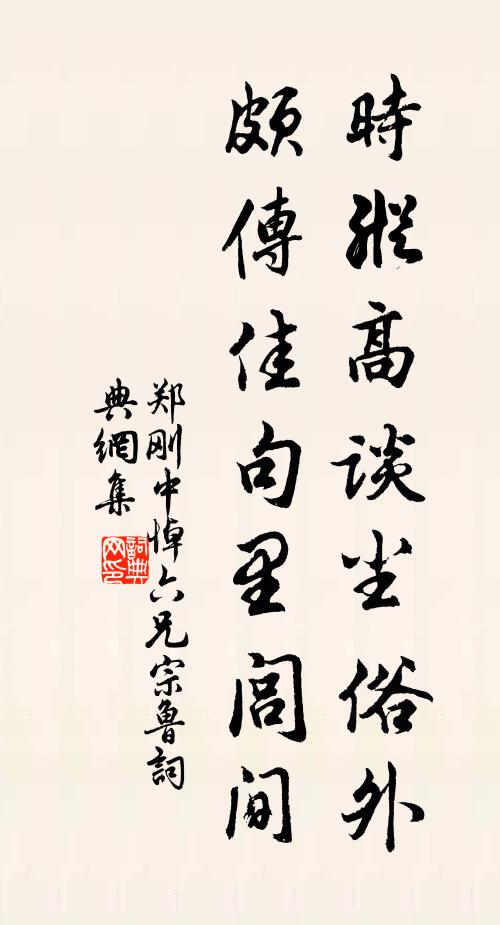 時縱高談尘俗外
頗傳佳句里閭間
郑刚中悼六兄宗鲁詞
典網集
詞典網印